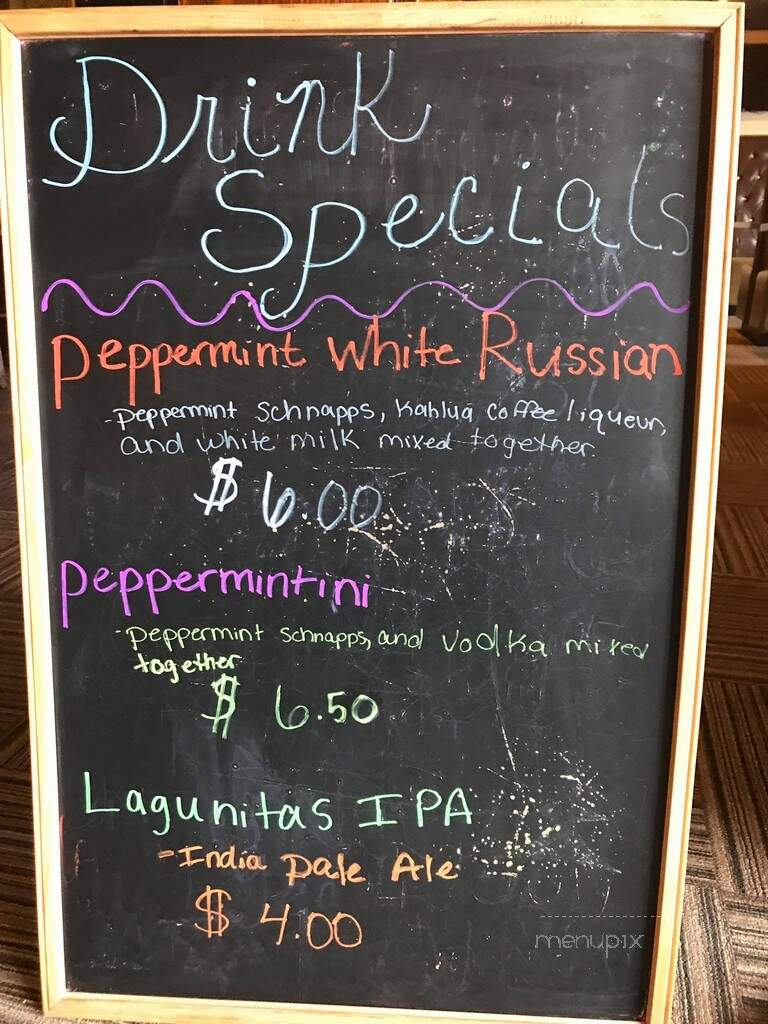 Drink
Specials
Peppermint White Russian
-peppermint schnapps, Kahlua coffee liqueur,
and white milk mixed together
$6.00
Peppermintini
-peppermint schnapps, and vodka mixed
together
$6.50
Lagunitas IPA
-India Pale Ale
$4.00
menupix